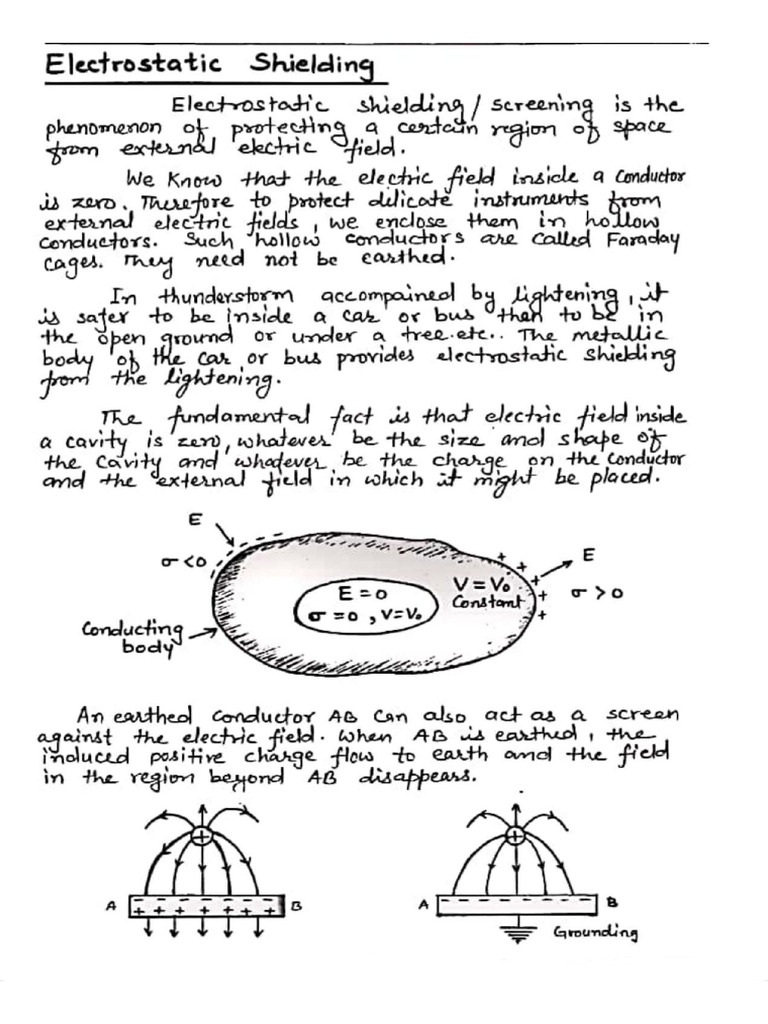 Electrostatic Shielding
Electrostatic shielding/screening is the
phenomenon of protecting a certain region of space
from external electric field.
We Know that the electric field inside a conductor
is zero. Therefore to protect delicate instruments from
external electric fields, we enclose them in hollow
conductors. Such hollow conductors are called Faraday
cages. They need not be earthed.
In thunderstorm accompained by lightening, it
is safer to be inside a car or bus than to be in
the open ground or under a tree.etc.. The metallic
body of the car or bus provides electrostatic shielding
from the lightening.
The fundamental fact is that electric field inside
a cavity is zero, whatever be the size and shape of
the cavity and whatever be the charge on the conductor
and the external field in which it might be placed.
E
σ<0
E = 0
σ = 0, V = V₀
V = V₀
Constant
E
σ > 0
Conducting
body
An earthed conductor AB can also act as a screen
against the electric field. When AB is earthed, the
induced positive charge flow to earth and the field
in the region beyond AB disappears.
A
B
A
B
Grounding